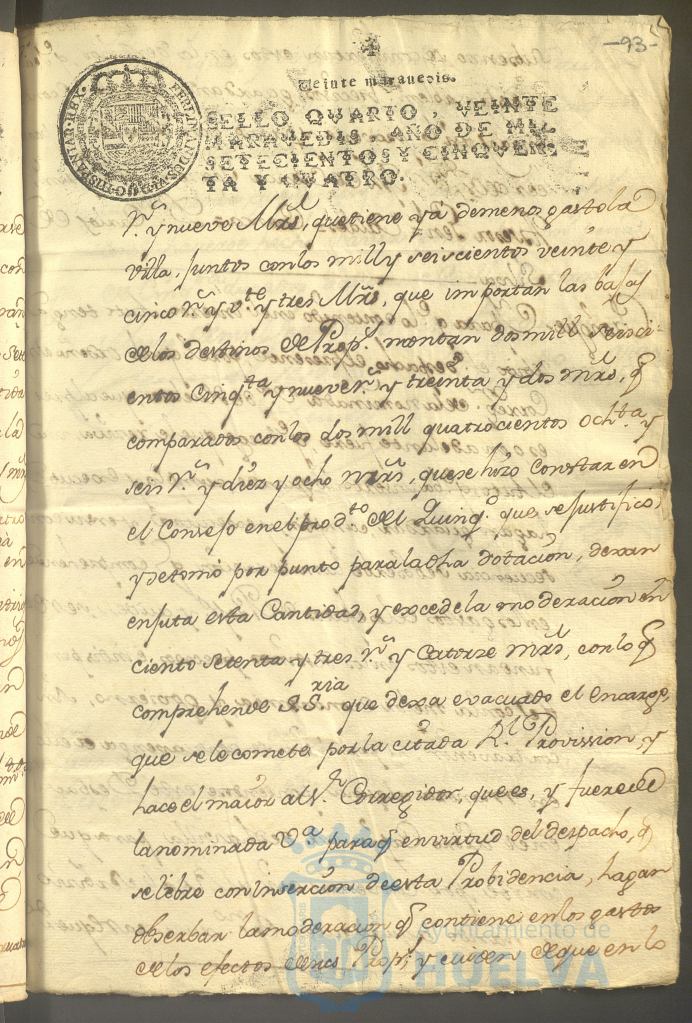 -93-
Veinte maravedis.
SELLO QVARTO, VEINTE
MARAVEDIS, AÑO DE MIL
SETECIENTOS Y CINQVEN-
TA Y QVATRO.
FERDINANDUS VI D G HISPANIAR REX
r.ˢ y nueve Mrs̃, que tiene ya de menos gasto la
villa, Juntos con los mill y seis cientos veinte y
cinco r.ˢ y vᵗᵉ y tres Mrs̃, que importan las bajas
de los destinos de Prop.ˢ montan dos mill seisci-
entos Cinqᵗᵃ y nueve r.ˢ y treinta y dos mrs̃, q̃
comparados con los dos mill quatrocientos Ochᵗᵃ y
seis r.ˢ y diez y ocho mrs̃, que se hizo Constar en
el Consejo en el prodᵗᵒ del Quinq.º que se justifico,
y se tomó por punto para la dha dotacion, dexan
enjuta esta Cantidad, y excede la moderacion en
ciento setenta y tres r.ˢ y Catorze mrs̃, con lo q̃
comprehende S. S.ʳⁱᵃ que dexa evacuado el encargo,
que se le comete por la citada R.ˡ Provission, y
hace el maior al S.ʳ Corregidor, que es, y fuere de
la nominada v.ᵃ para q̃ en virtud del despacho, q̃
se libre con insercion de esta Probidencia, hagan
obserbar la moderacion q̃ contiene en los gastos
de los efectos de sus Prop.ˢ y cuiden de que en lo
Ayuntamiento de
HUELVA